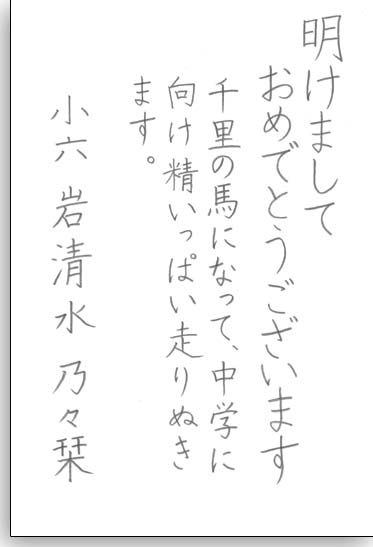 明けまして
おめでとうございます
千里の馬になって、中学に
向け精いっぱい走りぬき
ます。
小六 岩清水 乃々栞